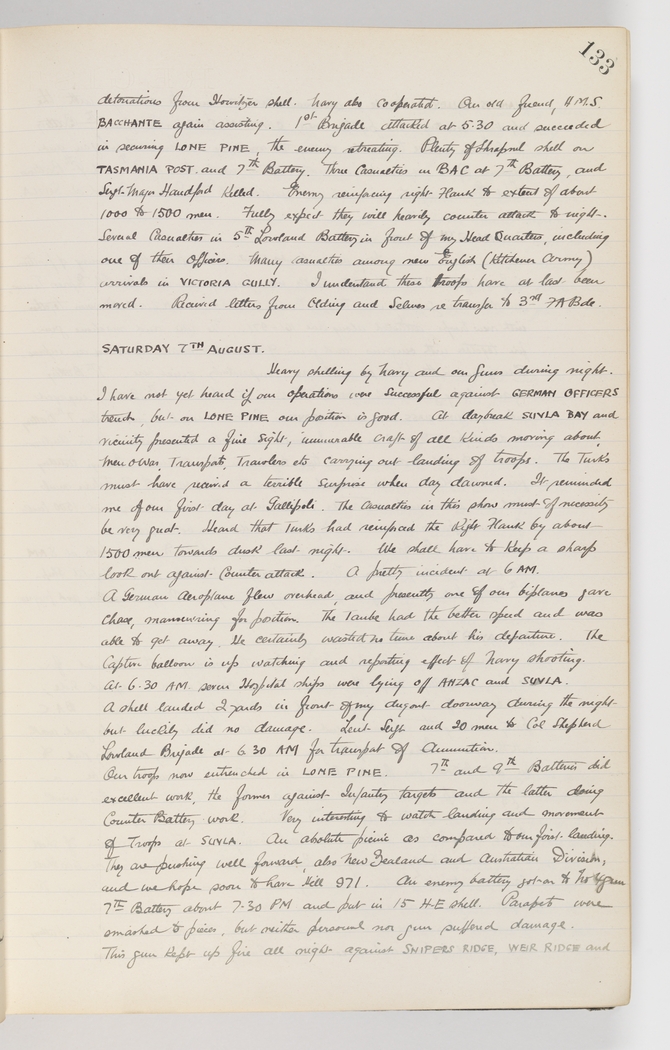 133
detonations from Howitzer shell. Navy also cooperated. Our old friend, H.M.S.
BACCHANTE again assisting. 1st Brigade attacked at 5.30 and succeeded
in securing LONE PINE, the enemy retreating. Plenty of Shrapnel shell on
TASMANIA POST. and 7th Battery. Three Casualties in BAC at 7th Battery, and
Sergt-Major Handford Killed. Enemy reinforcing right Flank to extent of about
1000 to 1500 men. Fully expect they will heavily counter attack to night.
Several Casualties in 5th Lowland Battery in front of my Head Quarters, including
one of their Officers. Many casualties among new English (Kitchener Army)
arrivals in VICTORIA GULLY. I understand these troops have at last been
moved. Received letters from Olding and Selmes re transfer to 3rd FA Bde.
SATURDAY 7TH AUGUST.
Heavy shelling by Navy and our Guns during night.
I have not yet heard if our operations were successful against GERMAN OFFICERS
trench, but on LONE PINE our position is good. At daybreak SUVLA BAY and
vicinity presented a fine sight, innumerable craft of all kinds moving about,
Men o War, Transports, Trawlers etc carrying out landing of troops. The Turks
must have received a terrible surprise when day dawned. It reminded
me of our first day at Gallipoli. The casualties in this show must of necessity
be very great. Heard that Turks had reinforced the Right Flank by about
1500 men towards dusk last night. We shall have to keep a sharp
look out against Counter attack. A pretty incident at 6 AM.
A German Aeroplane flew overhead, and presently one of our biplanes gave
chase, manoeuvring for position. The Taube had the better speed and was
able to get away. He certainly wasted no time about his departure. The
Captive balloon is up watching and reporting effect of Navy shooting.
At 6.30 AM seven Hospital ships were lying off ANZAC and SUVLA.
A shell landed 2 yards in front of my dugout doorway during the night
but luckily did no damage. Lent Sergt and 20 men to Col Shepherd
Lowland Brigade at 6.30 AM for transport of Ammunition.
Our troops now entrenched in LONE PINE. 7th and 9th Batteries did
excellent work, the former against Infantry targets and the latter doing
Counter Battery work. Very interesting to watch landing and movement
of Troops at SUVLA. An absolute picnic as compared to our first landing.
They are pushing well forward, also New Zealand and Australian Division,
and we hope soon to have Hill 971. An enemy battery got on to No 4 gun
7th Battery about 7.30 PM and put in 15 H.E shell. Parapets were
smashed to pieces, but neither personnel nor gun suffered damage.
This gun kept up fire all night against SNIPERS RIDGE, WEIR RIDGE and